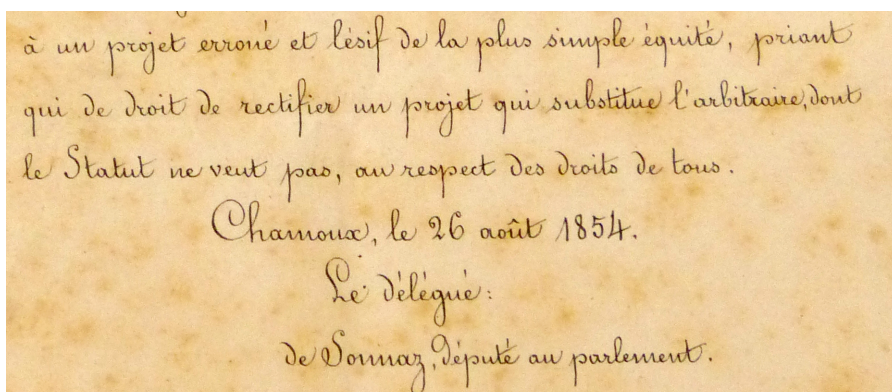 à un projet erroné et lésif de la plus simple équité, priant
qui de droit de rectifier un projet qui substitue l'arbitraire, dont
le Statut ne veut pas, au respect des droits de tous.
Chamoux, le 26 août 1854.
Le délégué:
de Sonnaz, député au parlement.